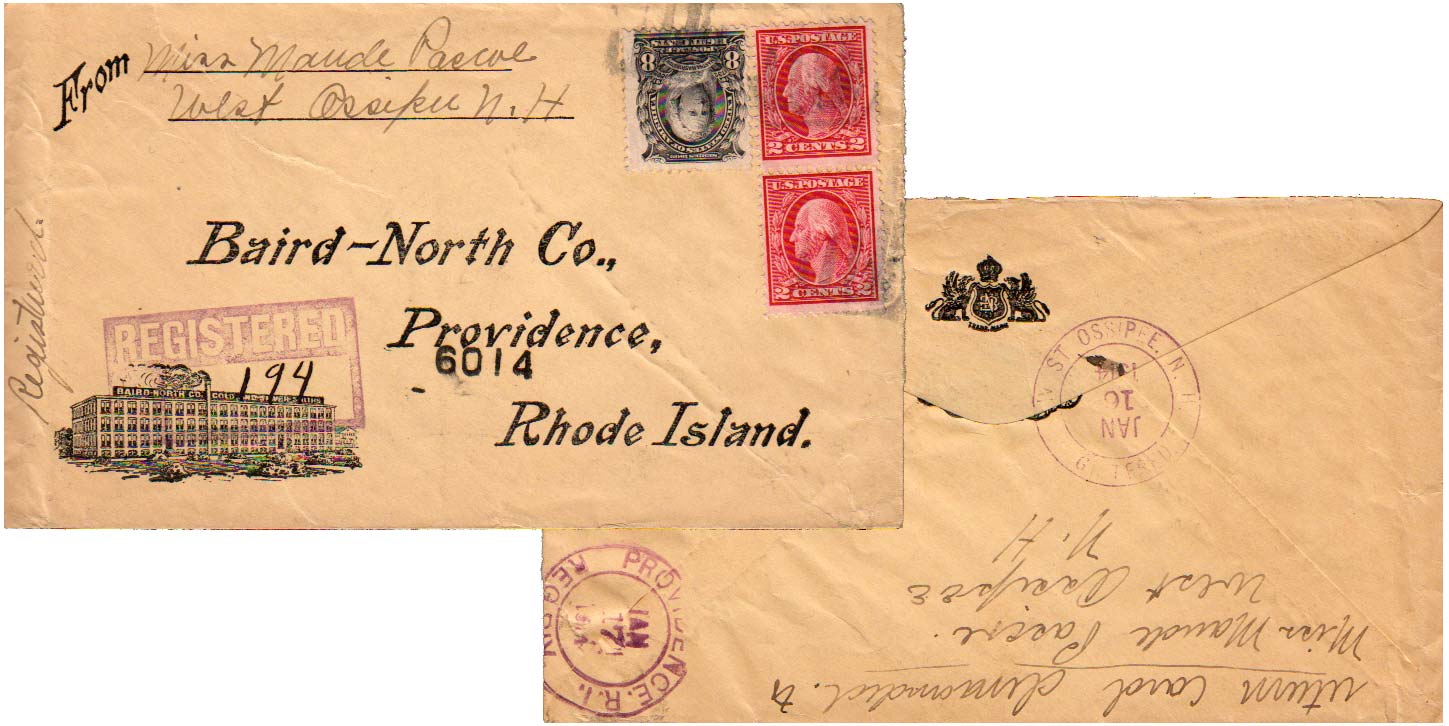 From Miss Maude Pascoe
West Ossipee N.H
Registered.
8
8
UNITED STATES OF AMERICA
U.S. POSTAGE
2 CENTS 2
U.S. POSTAGE
2 CENTS 2
Baird-North Co.,
Providence,
6014
Rhode Island.
REGISTERED
194
BAIRD-NORTH CO. GOLD AND SILVER SMITHS
TRADE-MARK
ST OSSIPEE. N. H
JAN
16
PROVIDENCE. R.I.
JAN
return Card demanded. to
Miss Maude Pascoe.
West Ossipee
N. H